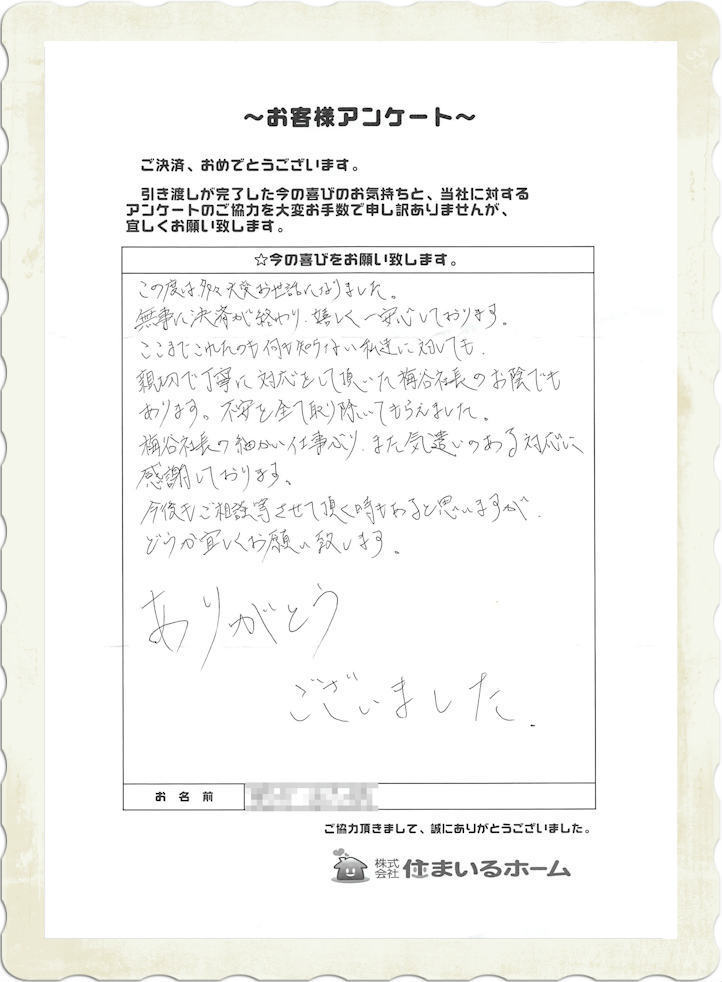 ～お客様アンケート～
ご決済、おめでとうございます。
引き渡しが完了した今の喜びのお気持ちと、当社に対する
アンケートのご協力を大変お手数で申し訳ありませんが、
宜しくお願い致します。
☆今の喜びをお願い致します。
この度は、多々大変お世話になりました。
無事に決済が終わり、嬉しく一安心しております。
ここまでこれたのも何も知らない私達に対しても、
親切で丁寧に対応をして頂いた梅谷社長のお陰でも
あります。不安を全て取り除いてもらえました。
梅谷社長の細かい仕事ぶり、また気遣いのある対応に
感謝しております。
今後もご相談等させて頂く時もあると思いますが、
どうか宜しくお願い致します。
ありがとう
ございました.
お名前
ご協力頂きまして、誠にありがとうございました。
株式会社 住まいるホーム